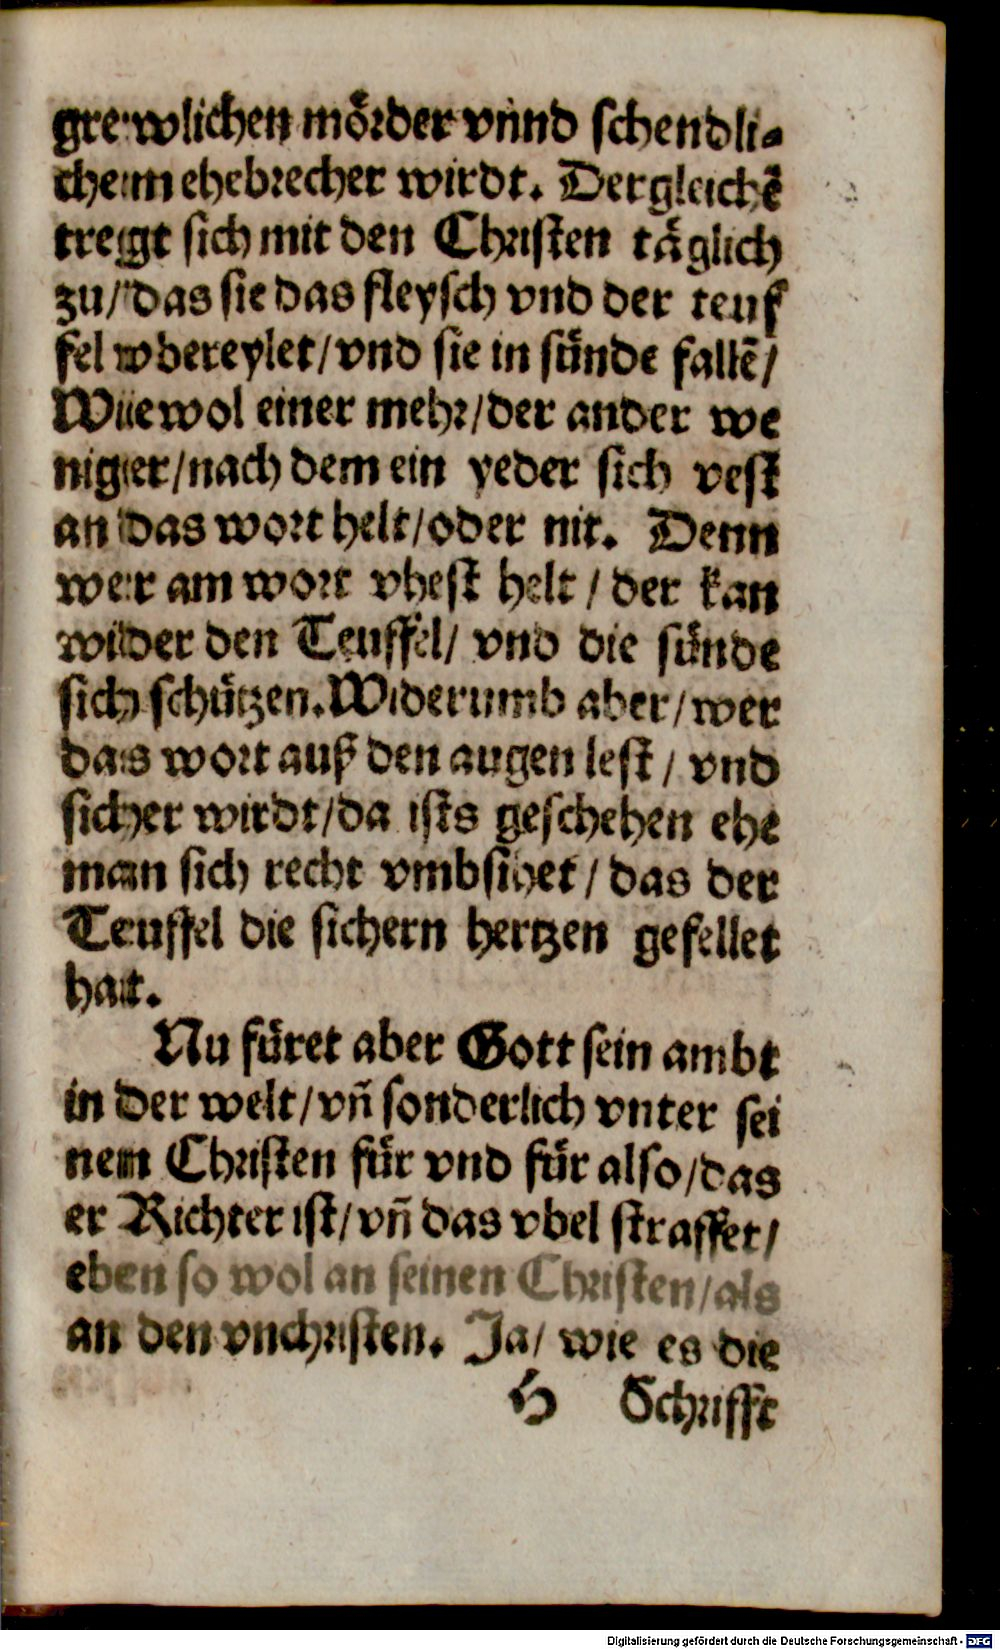 grewlichen mörder vnnd schendli-
chem ehebrecher wirdt. Dergleichē
tregt sich mit den Christen täglich
zu/ das sie das fleysch vnd der teuf
fel vbereylet/ vnd sie in sünde fallē/
Wiewol einer mehr/ der ander we
niger/ nach dem ein yeder sich vest
an das wort helt/ oder nit. Denn
wer am wort vhest helt/ der kan
wider den Teuffel/ vnd die sünde
sich schützen. Widerumb aber/ wer
das wort auß den augen lest/ vnd
sicher wirdt/ da ists geschehen ehe
man sich recht vmbsihet/ das der
Teuffel die sichern hertzen gefellet
hat.
Nu füret aber Gott sein ambt
in der welt/ vñ sonderlich vnter sei
nen Christen für vnd für also/ das
er Richter ist/ vñ das vbel straffet/
eben so wol an seinen Christen/ als
an den vnchristen. Ja/ wie es die
H Schrifft
Digitalisierung gefördert durch die Deutsche Forschungsgemeinschaft - DFG